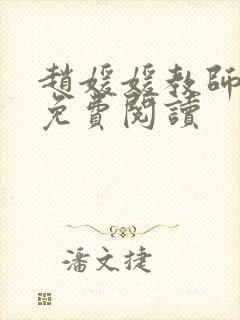 趙媛媛教師
免費閱讀
潘文捷